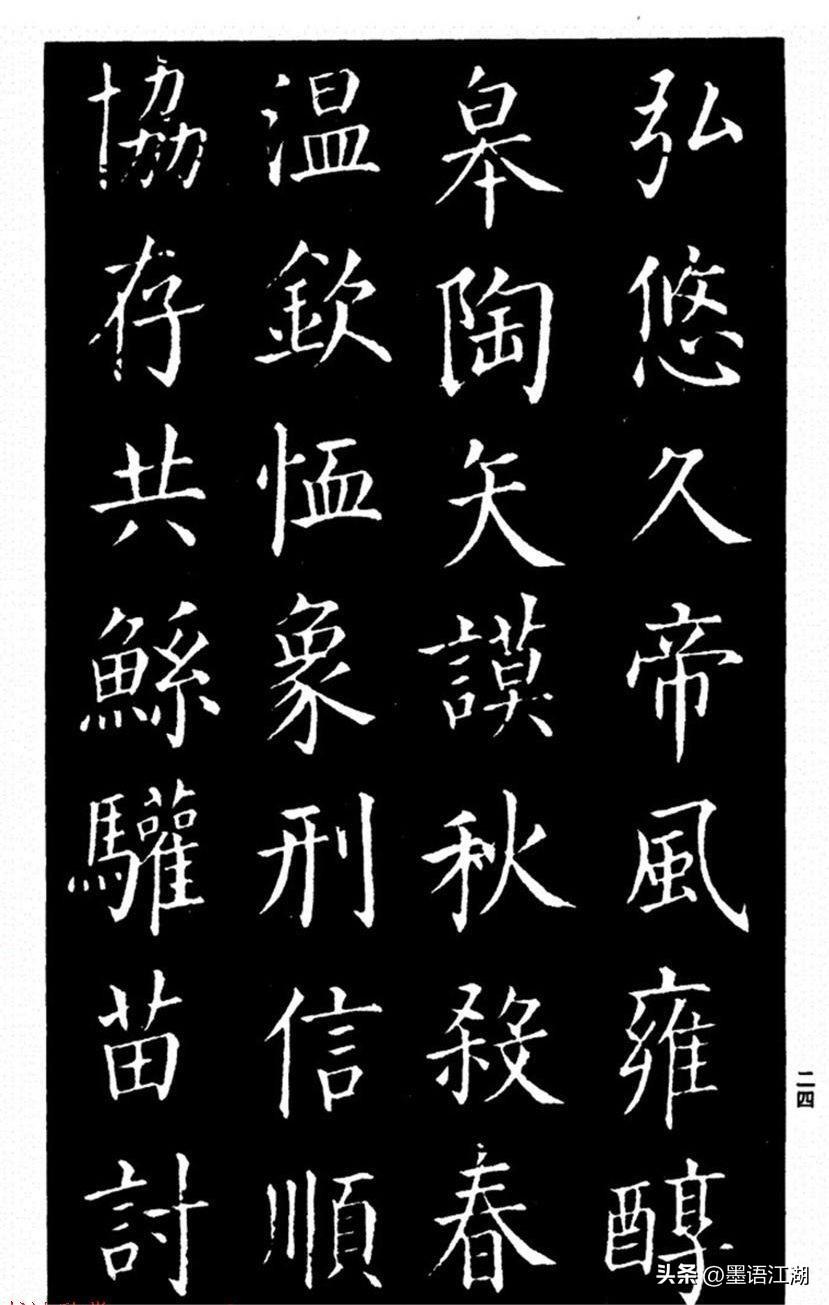 弘悠久帝風雍醇
皋陶矢謨秋殺春
温欽恤象刑信順
協存共鯀驩苗討
二四
头条 @墨语江湖